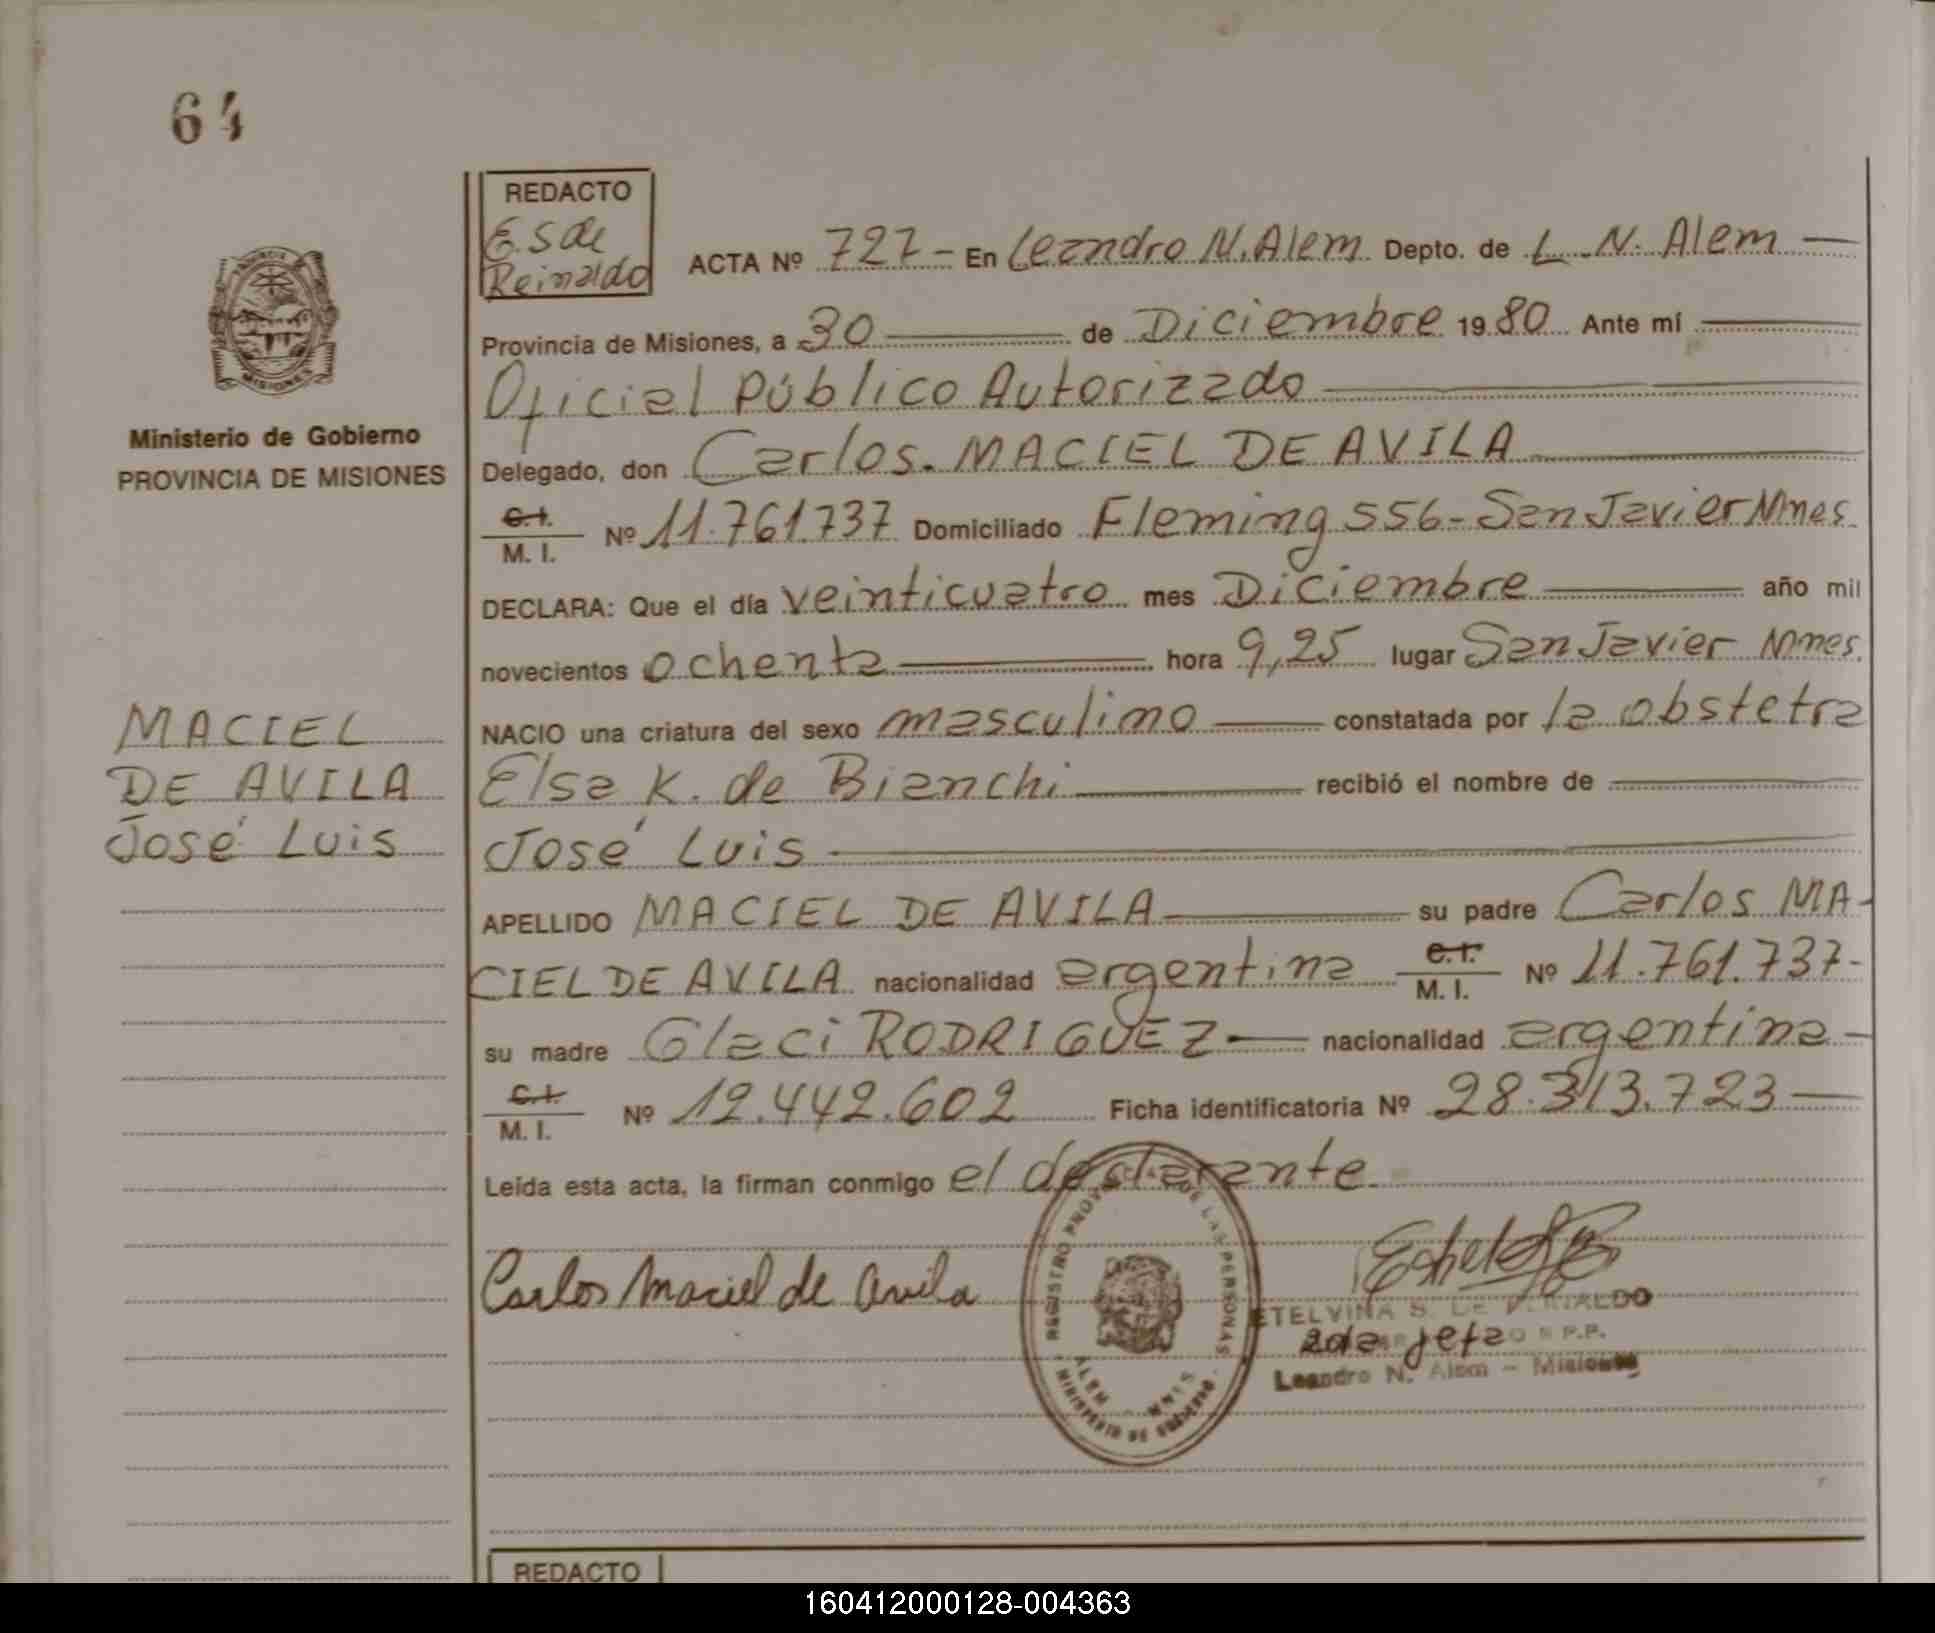 64
REDACTO
E. S de
Reinaldo
ACTA Nº 727 - En Leandro N. Alem Depto. de L. N. Alem —
Provincia de Misiones, a 30 — de Diciembre 1980 Ante mí —
Oficial Público Autorizado —
Ministerio de Gobierno
PROVINCIA DE MISIONES
Delegado, don Carlos. MACIEL DE AVILA —
C.I. / M. I. Nº 11.761.737 Domiciliado Fleming 556 - San Javier Mnes.
DECLARA: Que el día veinticuatro mes Diciembre — año mil
novecientos ochenta — hora 9,25 lugar San Javier Mnes.
NACIO una criatura del sexo masculino — constatada por la obstetra
Elsa K. de Bianchi — recibió el nombre de —
José Luis —
MACIEL
DE AVILA
José Luis
APELLIDO MACIEL DE AVILA — su padre Carlos MA-
CIEL DE AVILA nacionalidad argentina C.I. / M. I. Nº 11.761.737-
su madre Glaci RODRIGUEZ — nacionalidad argentina —
C.I. / M. I. Nº 12.442.602 Ficha identificatoria Nº 28.313.723 —
Leída esta acta, la firman conmigo el declarante.
Carlos Maciel de Avila
REGISTRO PROV. DE LAS PERSONAS
ALEM MNES
MINISTERIO DE GOBIERNO
ETELVINA S. DE
2da jefa P.P.
Leandro N. Alem - Misiones
REDACTO
160412000128-004363